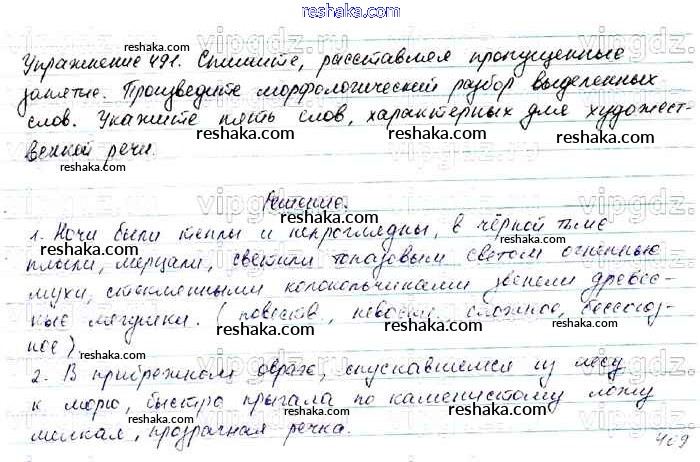 reshaka.com
Упражнение 491. Спишите, расставляя пропущенные
запятые. Произведите морфологический разбор выделенных
слов. Укажите пять слов, характерных для художест-
венной речи.
Решение.
1. Ночи были теплы и непроглядны, в чёрной тьме
плыли, мерцали, светили топазовым светом огненные
мухи, стеклянными колокольчиками звенели древес-
ные лягушки. (повеств., невоскл. сложное, бессоюз-
ное)
2. В прибрежном овраге, спускавшемся из лесу
к морю, быстро прыгала по каменистому ложу
мелкая, прозрачная речка.
409